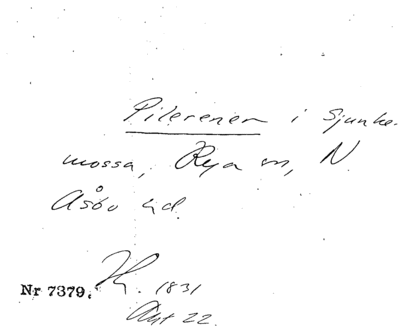 Pilerener i Sjunke-
mossa, Rya sn, N.
Åsbo hd.
Nr 7379. 1831
22.